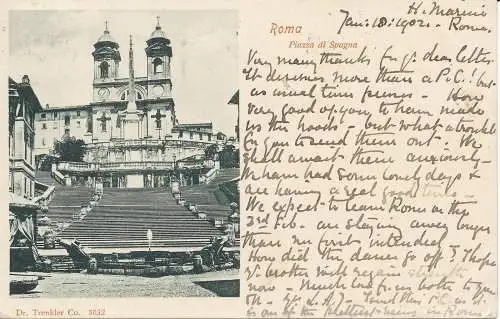 H. Marini
Roma
Jan: 18. 1902. Rome.
Piazza di Spagna
Very many thanks for yr. dear letter
It deserves more than a P.C.! but
as usual time presses - How
very good of you to have made
us the hoods - but what a trouble
for you to send them out - We
shall await them anxiously -
We have had some lovely days &
are having a real good time -
We expect to leave Rome on the
3rd Feb. - are staying away longer
than we first intended
How did the dances go off? I hope
yr. mother will regain strength
now - Much love from both to you
is one of the prettiest
Dr. Trenkler Co. 3032